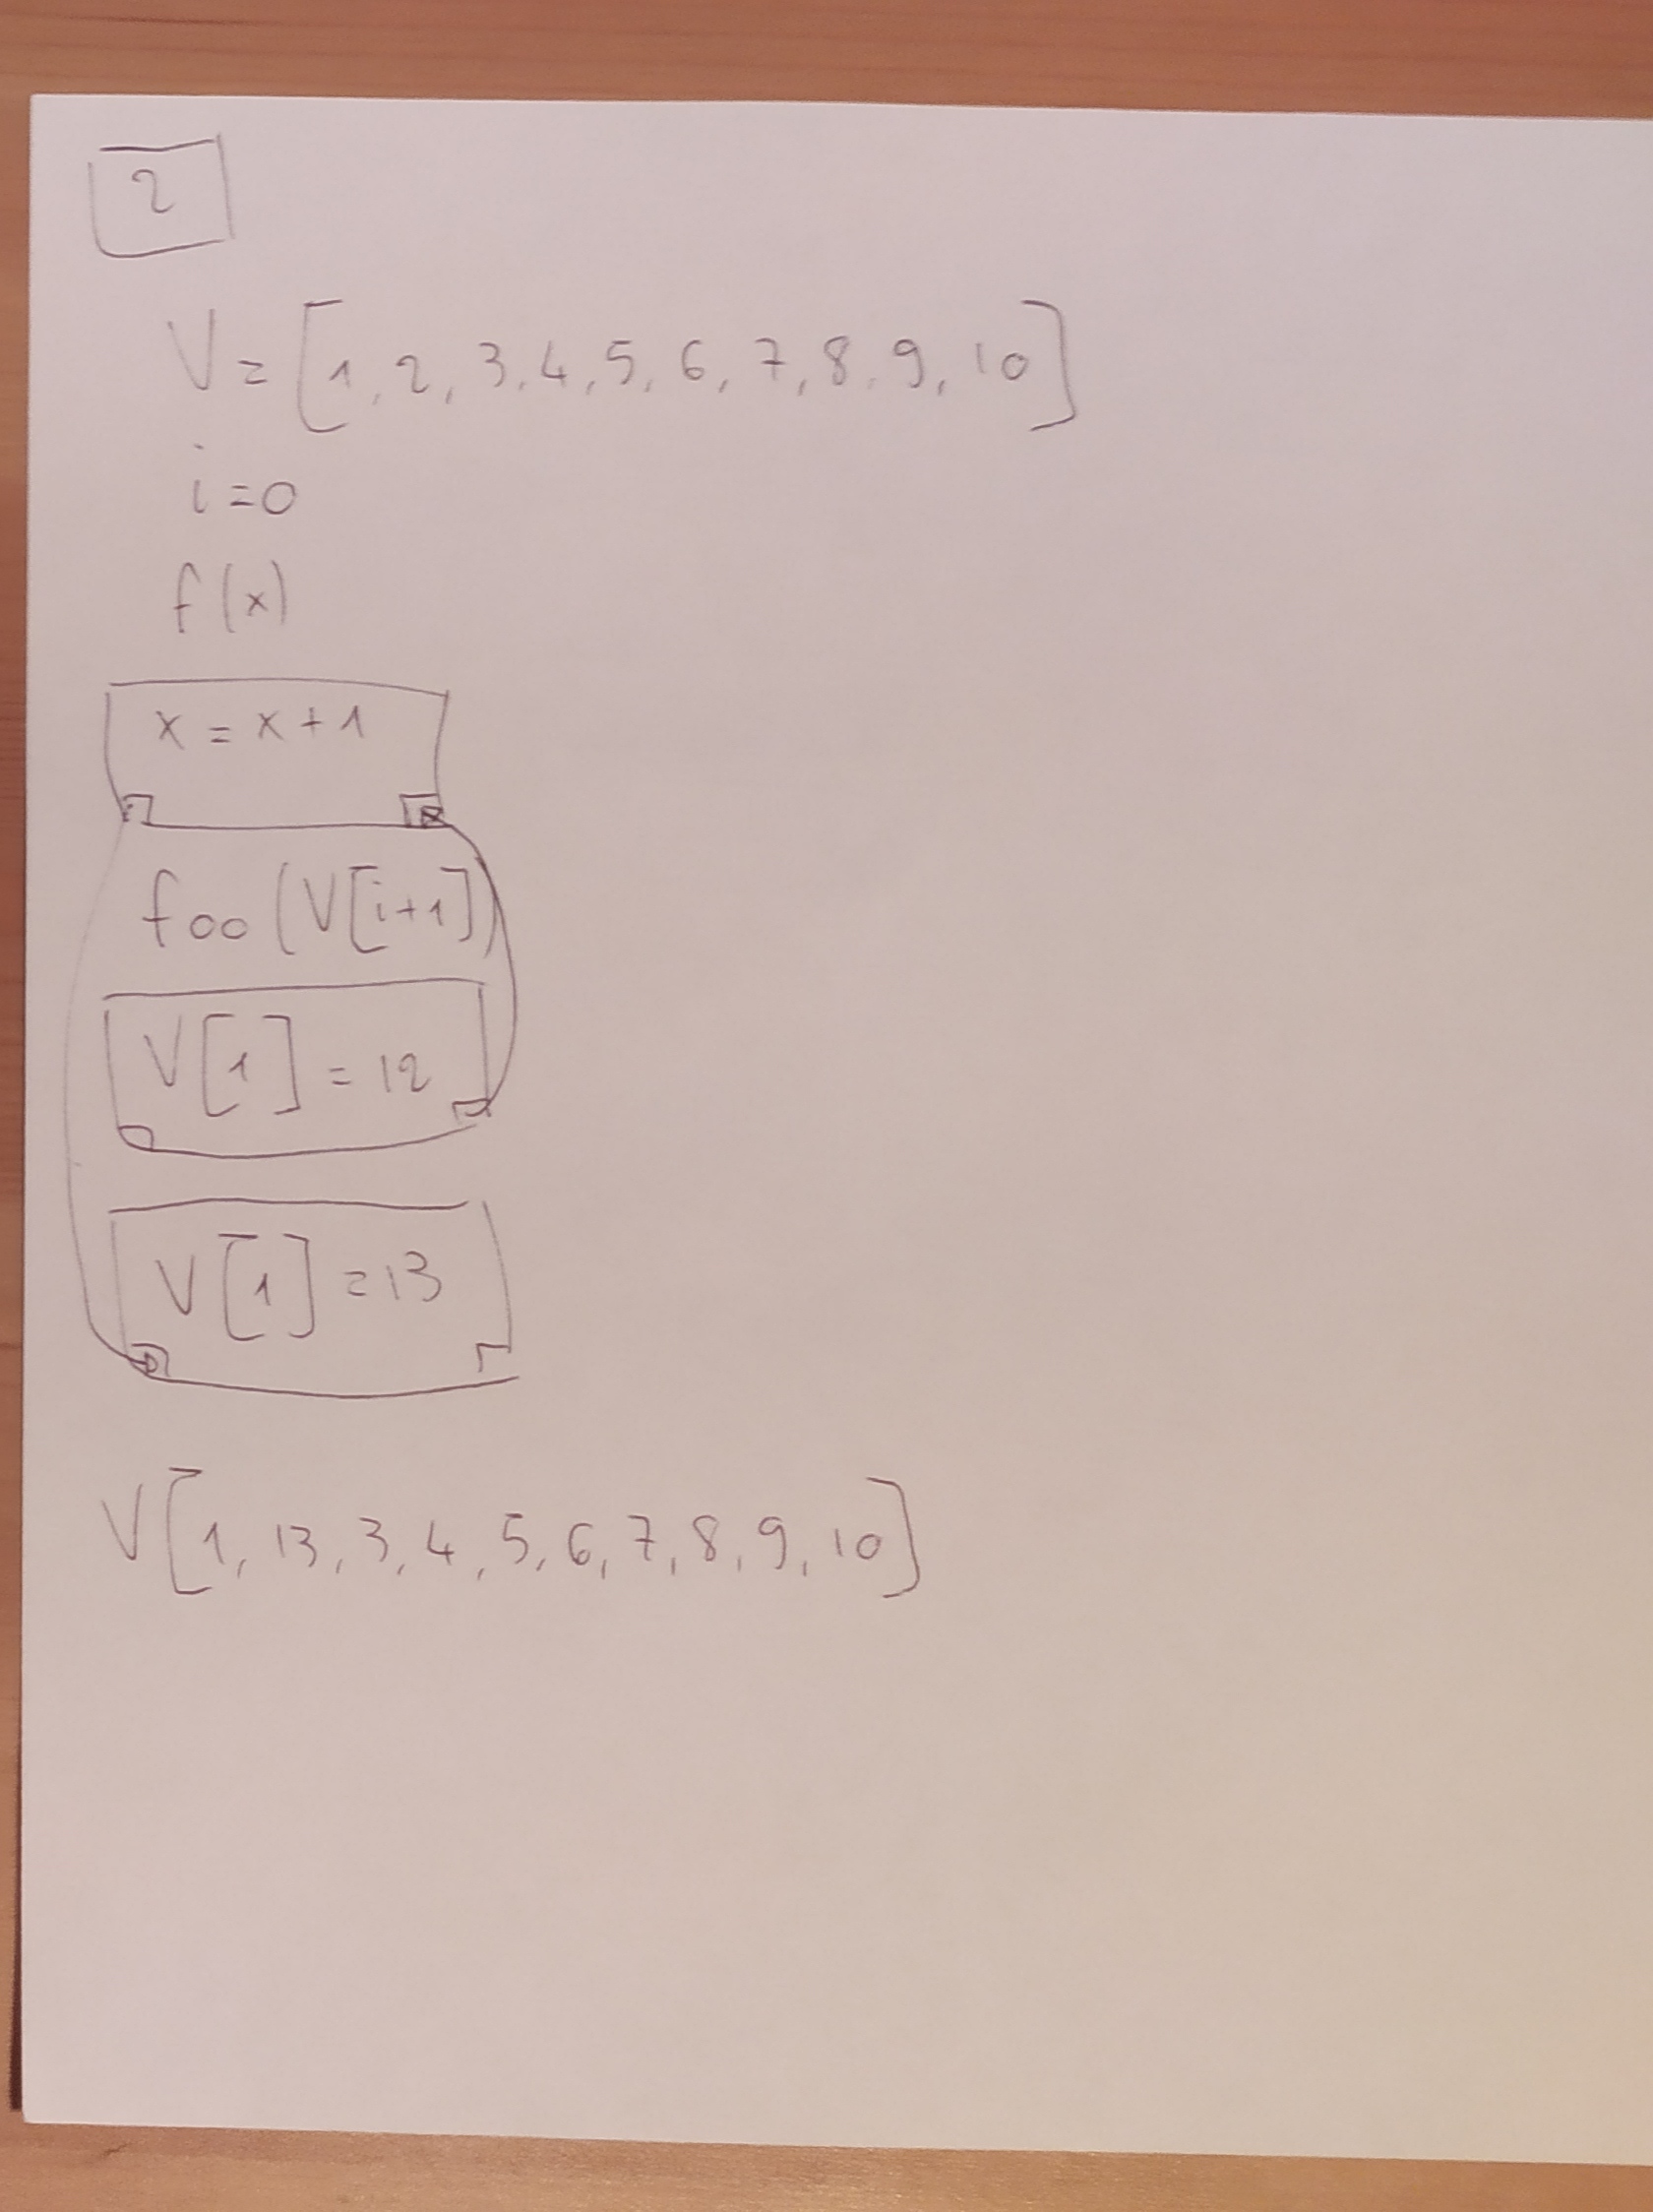 2
V = [1, 2, 3, 4, 5, 6, 7, 8, 9, 10]
i = 0
f(x)
x = x + 1
foo(V[i+1])
V[1] = 12
V[1] = 13
V[1, 13, 3, 4, 5, 6, 7, 8, 9, 10]